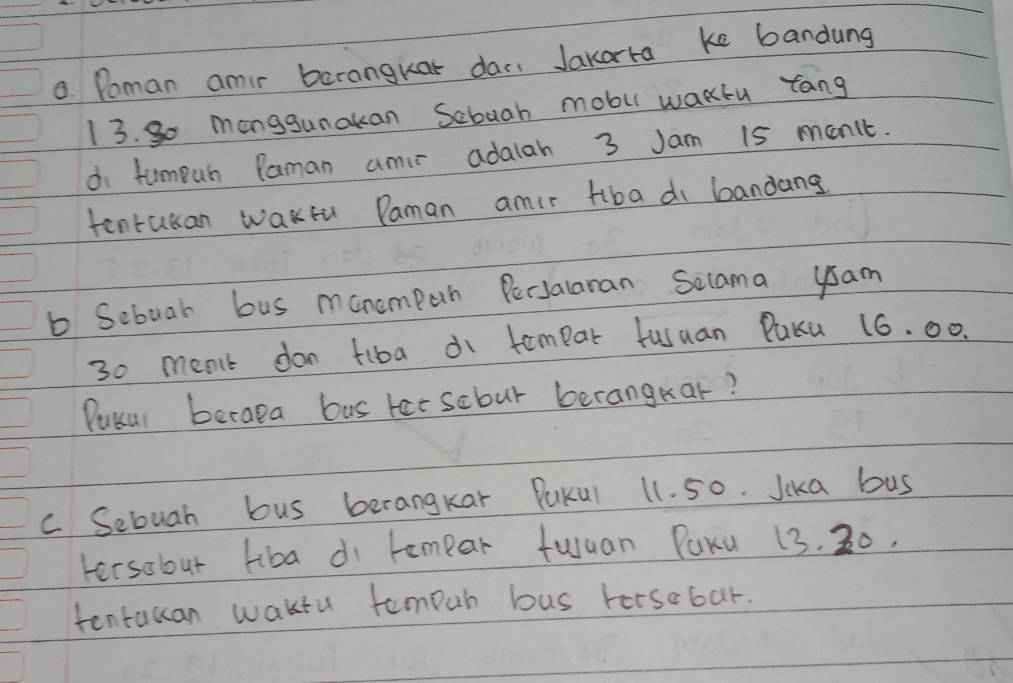 a. Paman amir berangkat dari Jakarta ke bandung
13.30 menggunakan Sebuah mobil waktu yang
di tumpuh Paman amir adalah 3 Jam 15 menit.
tentukan waktu Paman amir tiba di bandang.
b Sebuah bus menempuh Perjalanan Selama 4 Jam
30 menit dan tiba di tempat tujuan Puku 16.00.
Pukul berapa bus tersebut berangkat?
c Sebuah bus berangkat Pukul 11.50. Jika bus
tersebut tiba di tempat tujuan Puku 13.20.
tentukan waktu tempuh bus tersebut.